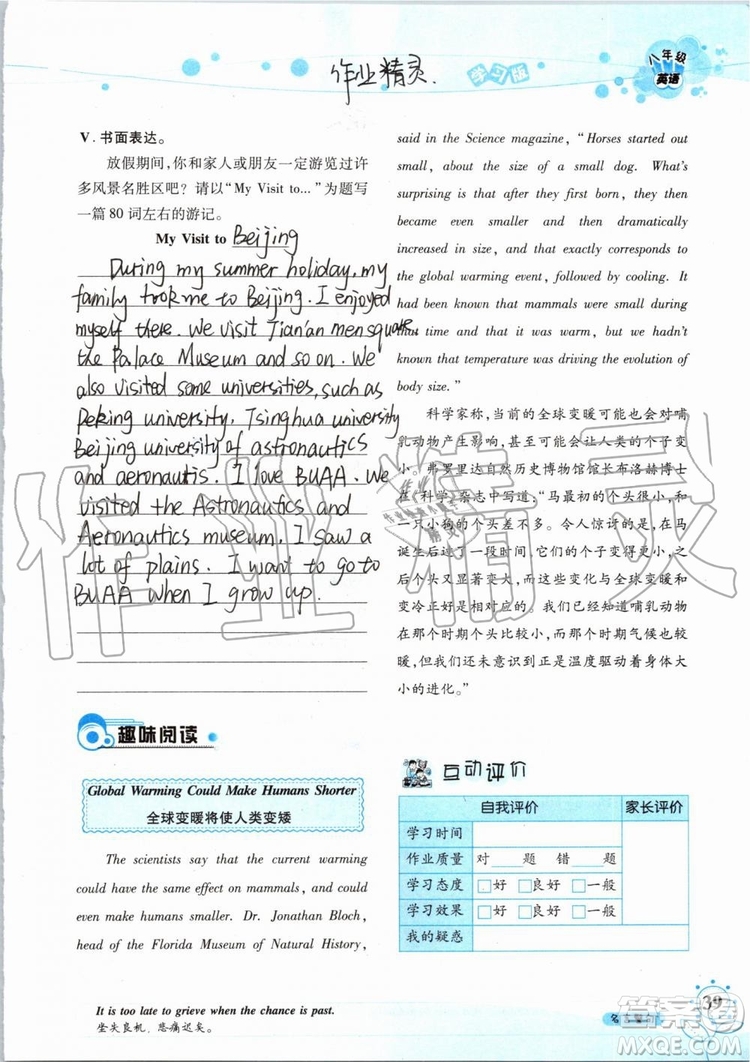 作业精灵.
学习版
八年级
英语
V. 书面表达。
放假期间,你和家人或朋友一定游览过许
多风景名胜区吧?请以“My Visit to...”为题写
一篇 80 词左右的游记。
My Visit to Beijing
During my summer holiday, my
family trook me to Beijing. I enjoyed
myself there. We visit Tian'an men square,
the Palace Museum and so on. We
also visited some universities, such as
Peking university, Tsinghua university
Beijing university of astronautics
and aeronautis. I love BUAA. We
visited the Astronautics and
Aeronautics museum. I saw a
lot of plains. I want to go to
BUAA when I grow up.
趣味阅读
Global Warming Could Make Humans Shorter
全球变暖将使人类变矮
The scientists say that the current warming
could have the same effect on mammals, and could
even make humans smaller. Dr. Jonathan Bloch,
head of the Florida Museum of Natural History,
said in the Science magazine, “Horses started out
small, about the size of a small dog. What's
surprising is that after they first born, they then
became even smaller and then dramatically
increased in size, and that exactly corresponds to
the global warming event, followed by cooling. It
had been known that mammals were small during
that time and that it was warm, but we hadn't
known that temperature was driving the evolution of
body size.”
科学家称,当前的全球变暖可能也会对哺
乳动物产生影响,甚至可能会让人类的个子变
小。弗罗里达自然历史博物馆馆长布洛赫博士
在《科学》杂志中写道:“马最初的个头很小,和
一只小狗的个头差不多。令人惊讶的是,在马
诞生后过了一段时间,它们的个子变得更小,之
后个头又显著变大,而这些变化与全球变暖和
变冷正好是相对应的。我们已经知道哺乳动物
在那个时期个头比较小,而那个时期气候也较
暖,但我们还未意识到正是温度驱动着身体大
小的进化。”
互动评价
自我评价 家长评价
学习时间
作业质量 对 题 错 题
学习态度 □好 □良好 □一般
学习效果 □好 □良好 □一般
我的疑惑
It is too late to grieve when the chance is past.
坐失良机,悲痛迟矣。
39
名言警句
作业精灵
答案圈
MXQE.COM